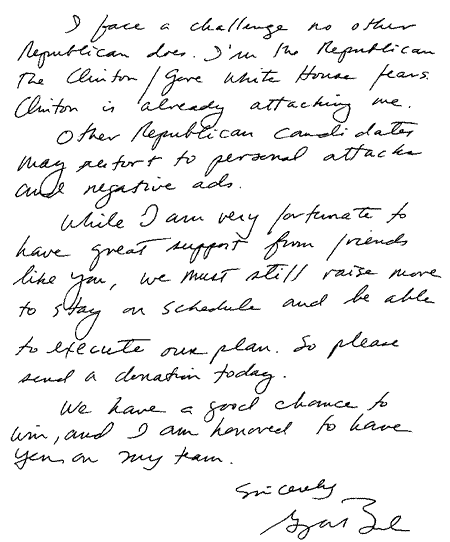 I face a challenge no other
Republican does. I'm the Republican
the Clinton/Gore White House fears.
Clinton is already attacking me.
Other Republican candidates
may resort to personal attacks
and negative ads.
While I am very fortunate to
have great support from friends
like you, we must still raise more
to stay on schedule and be able
to execute our plan. So please
send a donation today.
We have a good chance to
win, and I am honored to have
you on my team.
Sincerely